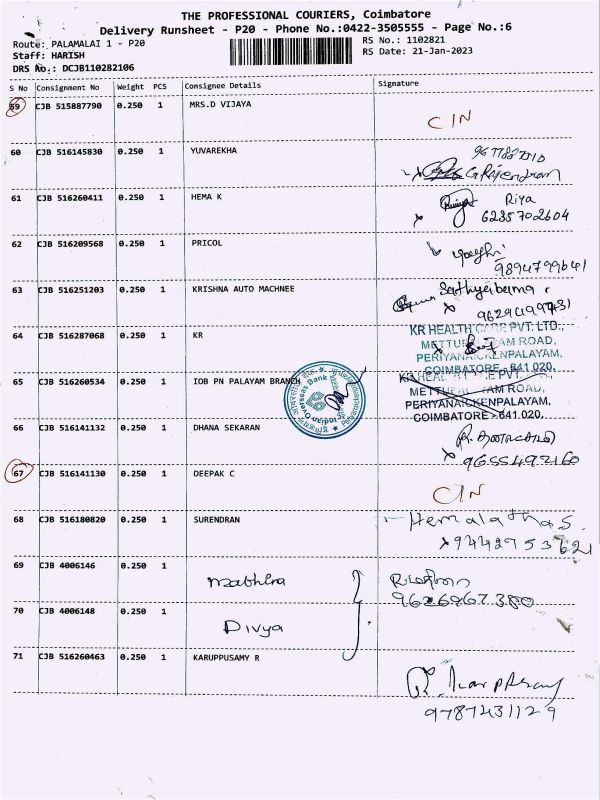 THE PROFESSIONAL COURIERS, Coimbatore
Delivery Runsheet - P20 - Phone No.:0422-3505555 - Page No.:6
Route: PALAMALAI 1 - P20
RS No.: 1102821
Staff: HARISH
RS Date: 21-Jan-2023
DRS No.: DCJB110282106
S No Consignment No Weight PCS Consignee Details Signature
59 CJB 515887790 0.250 1 MRS.D VIJAYA
CIN
60 CJB 516145830 0.250 1 YUVAREKHA
61 CJB 516260411 0.250 1 HEMA K
Riya
6285702604
62 CJB 516209568 0.250 1 PRICOL
9894799641
63 CJB 516251203 0.250 1 KRISHNA AUTO MACHNEE
64 CJB 516287068 0.250 1 KR
KR HEALTH CARE PVT. LTD.,
METTUPALAYAM ROAD,
PERIYANAICKENPALAYAM,
COIMBATORE - 641 020.
65 CJB 516260534 0.250 1 IOB PN PALAYAM BRANCH
Indian Overseas Bank
KR HEALTH CARE PVT.
METTUPALAYAM ROAD,
PERIYANAICKENPALAYAM,
COIMBATORE - 641 020.
66 CJB 516141132 0.250 1 DHANA SEKARAN
9655492160
67 CJB 516141130 0.250 1 DEEPAK C
CIN
68 CJB 516180820 0.250 1 SURENDRAN
Hemalatha S.
9442953621
69 CJB 4006146 0.250 1
9626967380
70 CJB 4006148 0.250 1 Divya
71 CJB 516260463 0.250 1 KARUPPUSAMY R
9787431129